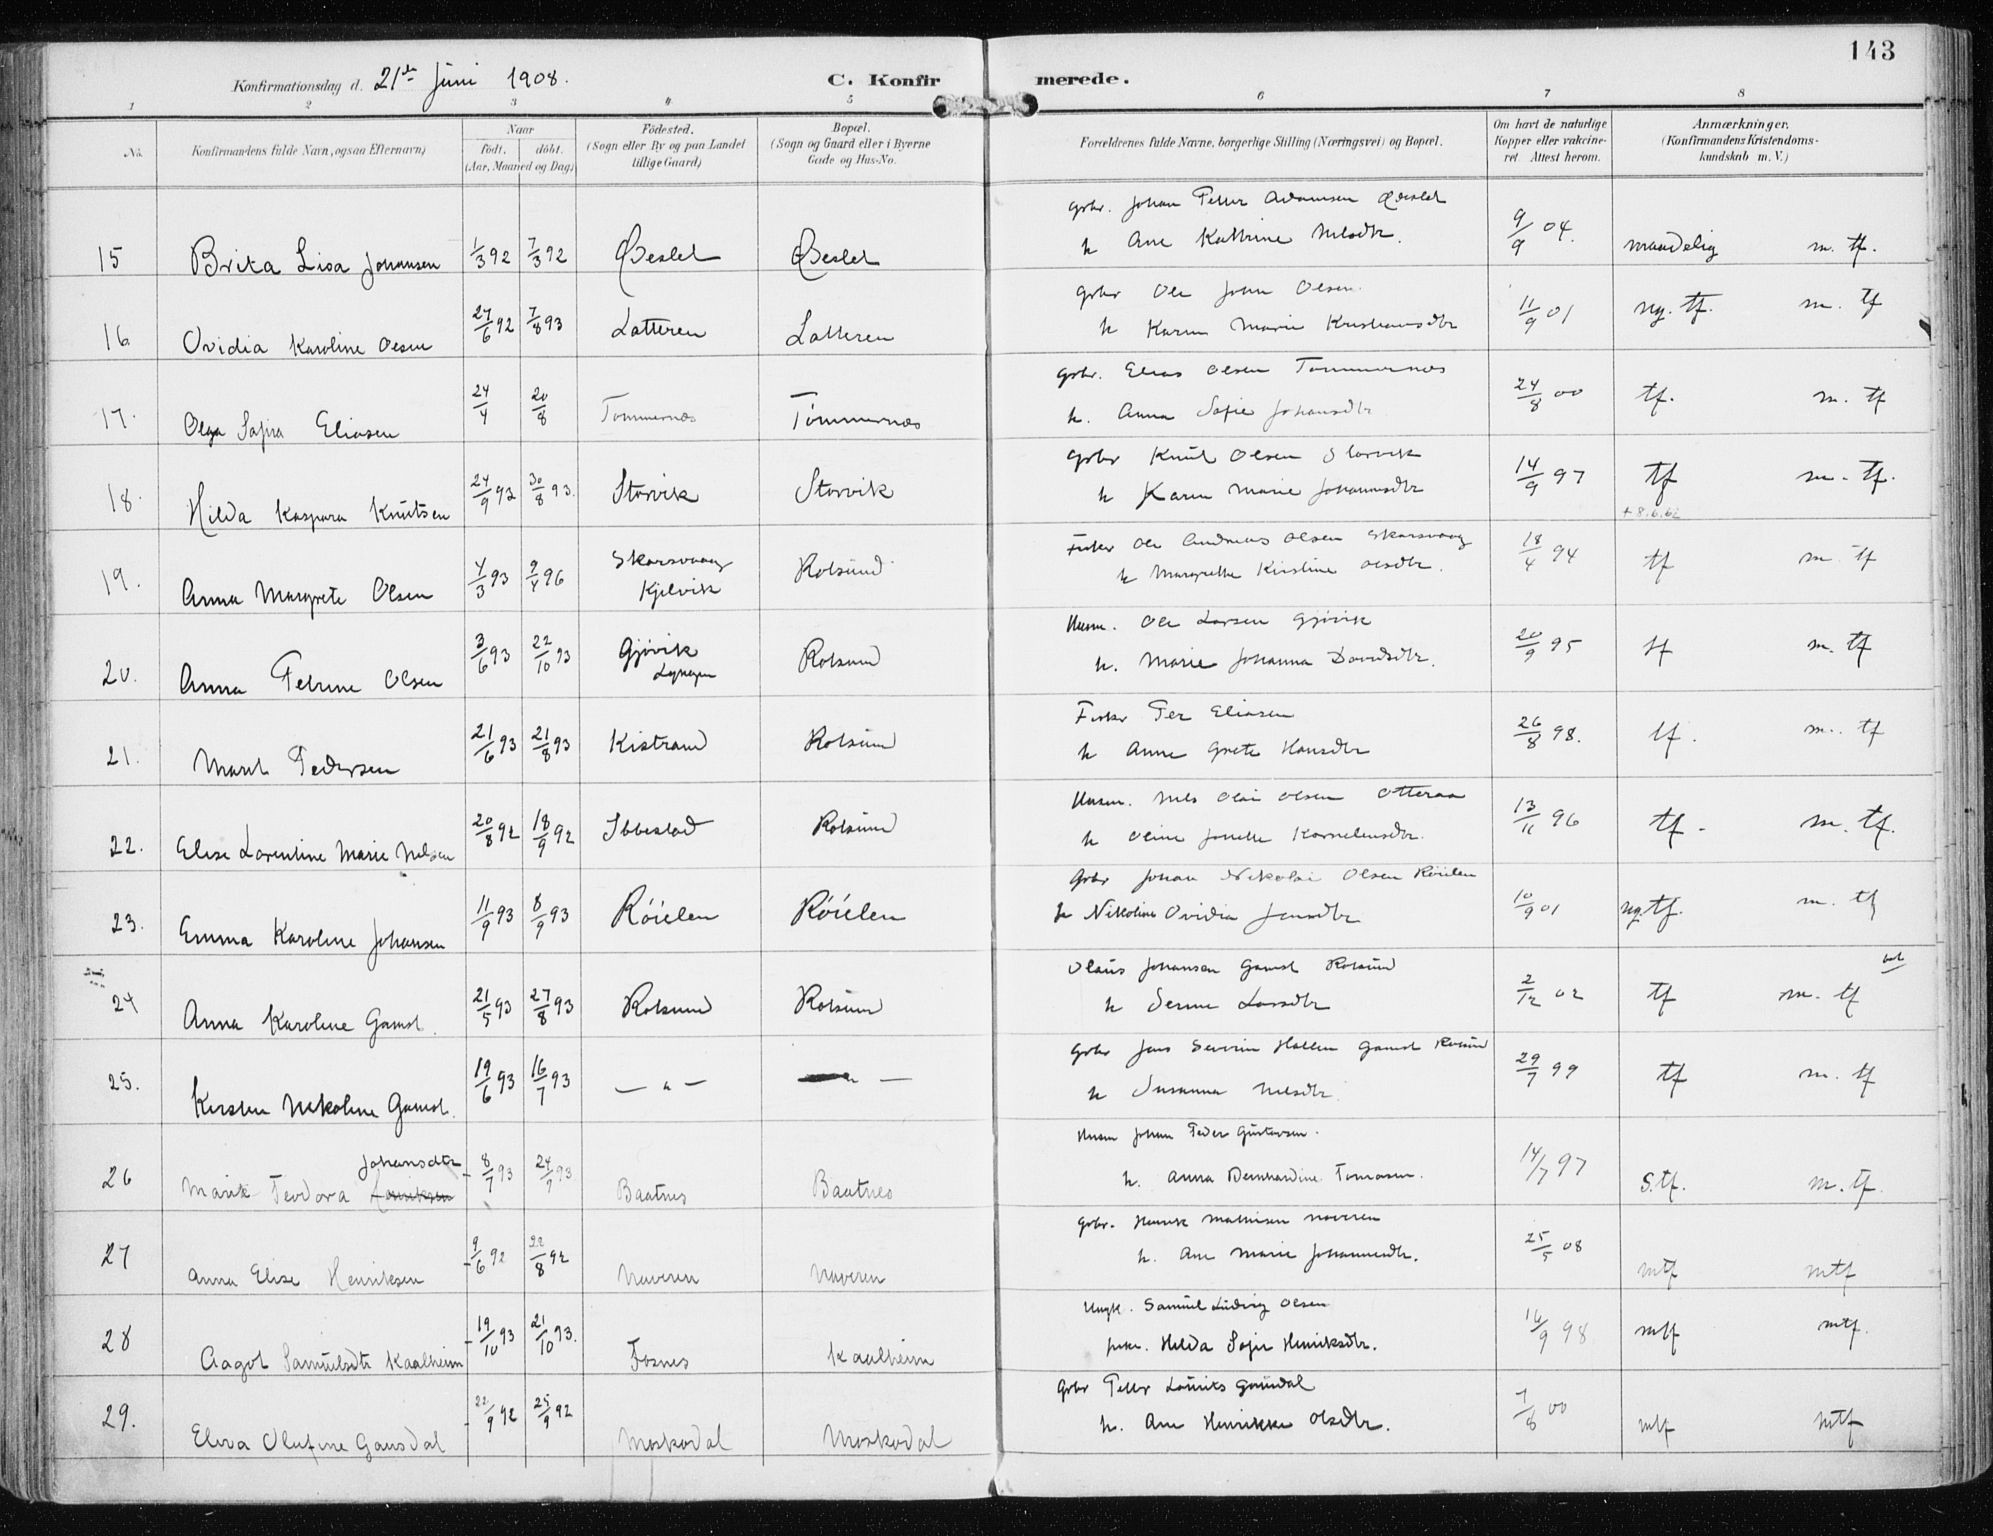 143
Konfirmationsdag d. 21de Juni 1908.
C. Konfirmerede.
1 2 3 4 5 6 7 8
No.
Konfirmandens fulde Navn, ogsaa Efternavn)
Naar
født. døbt.
(Aar, Maaned og Dag)
Fødested.
(Sogn eller By og paa Landet
tillige Gaard)
Bopæl.
(Sogn og Gaard eller i Byerne
Gade og Hus-No.
Forældrenes fulde Navne, borgerlige Stilling (Næringsvei) og Bopæl.
Om havt de naturlige
Kopper eller vakcine-
ret Attest herom.
Anmærkninger.
(Konfirmandens Kristendoms-
kundskab m. V.)
Gbr. Johan Petter Adamsen
15 Brita Lisa Johansen 1/3 92 7/3 92 h Ane Kathrine Nilsdtr. 9/9 04. maadelig m. tf.
Gbr Ole John Olsen
16 Ovidia Karoline Olsen 27/6 92 7/8 93 Latteren Latteren h Karen Marie Kristiansdtr 11/9 01 ng. tf. m. tf
Gbr. Elias Olsen Tømmernæs
17. Olga Sofia Eliasen 24/4 20/8 Tømmernæs Tømmernæs h. Anna Sofie Johansdtr 24/8 00 tf. m. tf
Gbr Knut Olsen Storvik
18. Hilda Kaspara Knutsen 24/9 92 30/8 93. Storvik Storvik h Karen Marie Johannsdtr 14/9 97 tf m. tf.
+ 8.6.62
Fisker Ole Andreas Olsen Skarsvaag
19. Anna Margrete Olsen 4/3 93 9/4 96 Skarsvaag Kjelvik Rotsund h Margrethe Kirstine Olsdtr. 18/4 94 tf m. tf
Husm. Ole Larsen Gjøvik
20. Anna Petrine Olsen 3/6 93 22/10 93 Gjøvik Lyngen Rotsund h. Marie Johanna Davidsdtr. 20/9 95 tf m. tf
Fisker Per Eliasen
21. Marit Pedersen 21/6 93 21/8 93 Kistrand Rotsund h Anne Grete Hansdtr 26/8 98. tf. m. tf
Husm. Nils Olai Olsen Otteraa
22. Elise Lorentine Marie Nilsen 20/8 92 18/9 92 Ibbestad Rotsund h Oline Jonette Korneliusdtr. 13/11 96 tf. m. tf.
Gbr Johan Nikolai Olsen Röielen
23. Emma Karoline Johansen 11/9 93 8/9 93 Röielen Röielen h Nikoline Ovidia Jensdtr 10/9 01 ng. tf. m. tf
Olaus Johansen Gamst Rotsund
24 Anna Karoline Gamst. 21/5 93 27/8 93 Rotsund Rotsund h Serine Larsdtr 2/12 02 tf m. tf
Gbr Jens Severin Hallen Gamst Rotsund
25. Kirsten Nikoline Gamst. 19/6 93 16/7 93 — " — — " — h Susanna Nilsdtr. 29/7 99 tf m. tf
Husm Johan Peder Gustavsen.
Johansdtr
26 Marit Teodora 8/7 93 24/9 93 Baatnes Baatnes h. Anna Bernhardine Tomasen. 14/7 97 S. tf. m. tf.
Gbr. Henrik Mathisen Naveren
27 Anna Elise Henriksen 9/6 92 22/8 92 Naveren Naveren h. Ane Marie Johannesdtr. 25/5 08 mtf mtf
Ungk. Samuel Ludvig Olsen
28 Aagot Samuelsdtr Kaalheim 19/10 93 21/10 93. Fosnes Kaalheim pike. Hilda Sofie Henriksdtr. 16/9 98 mtf mtf.
Gbr Petter Laurits Gausdal
29. Eliva Olufine Gausdal 22/9 92 25/9 92 Moskodal Moskodal h. Ane Henrikke Olsdtr. 7/8 00 mtf mtf